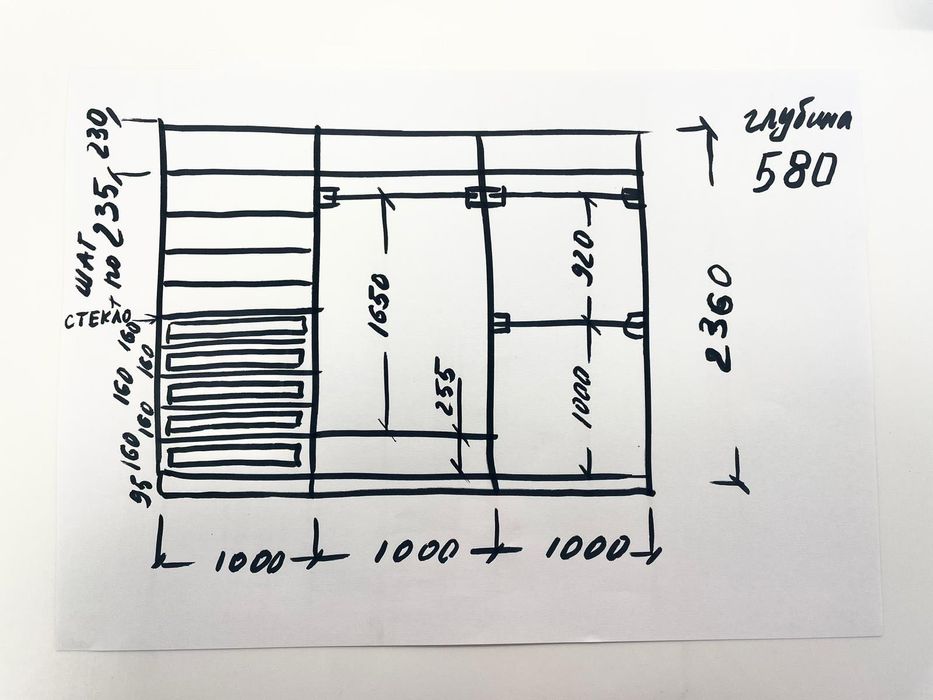 глубина
580
230
ШАГ
по 235
СТЕКЛО
160
160
160
160
160
95
1650
255
920
1000
2360
1000
1000
1000